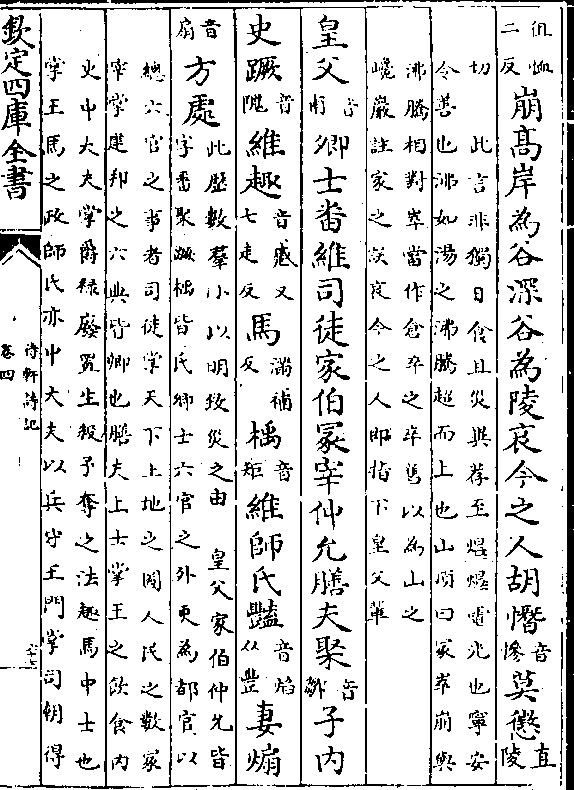 徂恤二反崩髙岸為谷深谷為陵哀今之人胡憯音慘莫懲直陵
切　此言非獨日食且災異荐至爗爗電光也寧安
令善也沸如湯之沸騰超而上也山頂曰冢崒崩與
沸騰相對崒當作倉卒之卒舊以為山之
巉巖註家之誤哀今之人即指下皇父輩
皇父音甫卿士番維司徒家伯冢宰仲允膳夫棸音鄒子内
史蹶音隗維趣音蹙又七走反馬滿補反楀音矩維師氏豔音焰从豐妻煽
音扇方處此歷數羣小以明致災之由　皇父家伯仲允皆
字番棸蹶楀皆氏卿士六官之外更為都官以
總六官之事者司徒掌天下土地之圖人民之數冢
宰掌建邦之六典皆卿也膳夫上士掌王之飲食内
史中大夫掌爵禄廢置生殺予奪之法趣馬中士也
掌王馬之政師氏亦中大夫以兵守王門掌司朝得
欽定四庫全書
待軒詩記
卷四